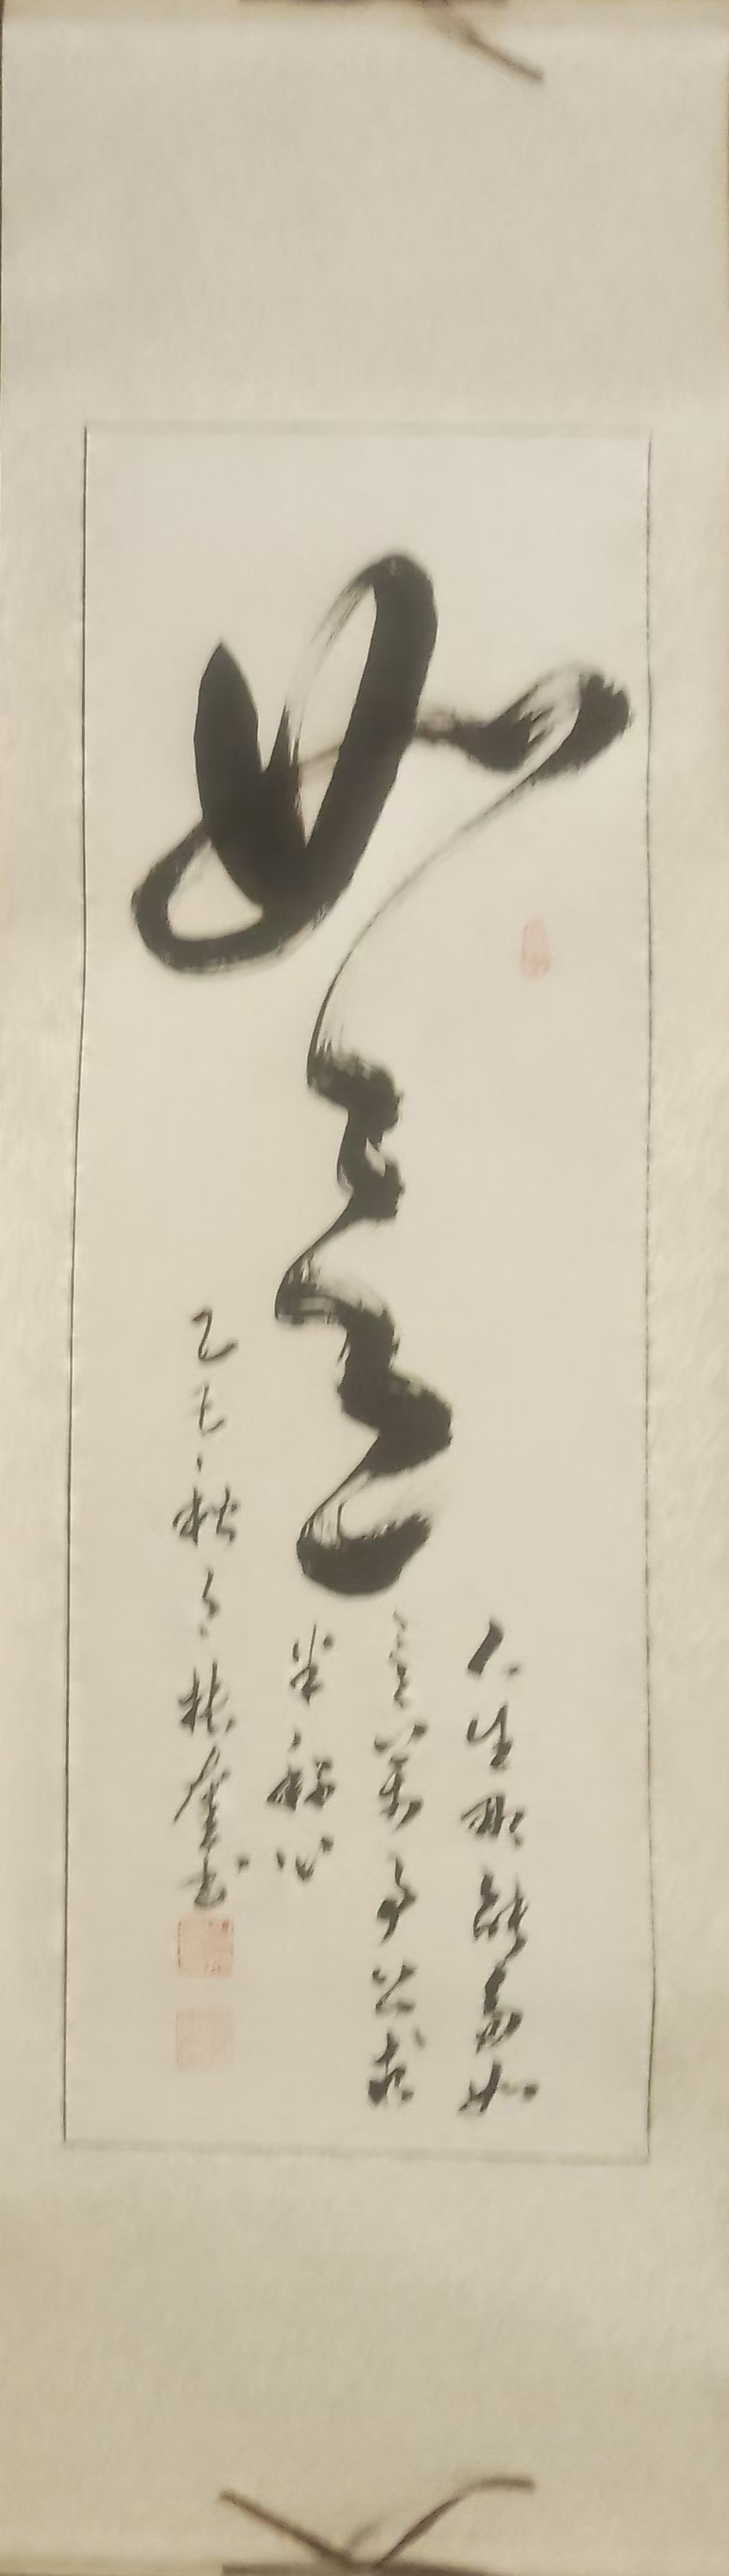 如意
人生哪能多如
意萬事只求
半稱心
乙巳秋月林奎书